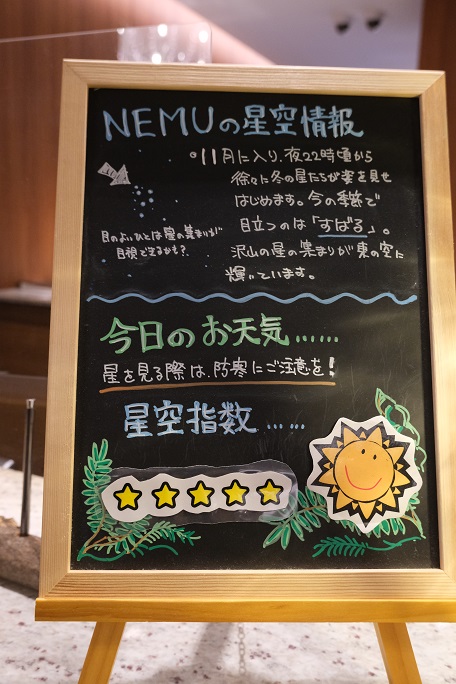 NEMUの星空情報
11月に入り、夜22時頃から
徐々に冬の星たちが姿を見せ
はじめます。今の季節で
目立つのは「すばる」。
沢山の星の集まりが東の空に
輝いています。
目のよいひとは星の集まりが
目視できるかも?
今日のお天気……
星を見る際は、防寒にご注意を!
星空指数……